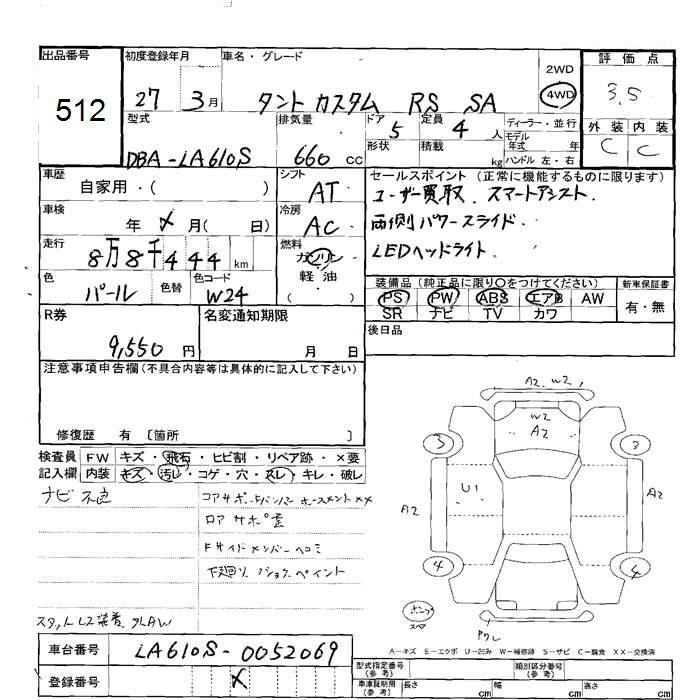 出品番号
512
初度登録年月
27 3月
車名・グレード
タント カスタム RS SA
2WD
4WD
評価点
3.5
外装 内装
C C
型式
DBA-LA610S
排気量
660 cc
ドア 5
形状
定員 4 人
積載 kg
ディーラー・並行
モデル年式 年
ハンドル 左・右
車歴
自家用・( )
シフト
AT
車検
年 月( 日)
冷房
AC
走行
8万8千444 km
燃料
ガソリン
軽油
( )
色
パール
色替
色コード
W24
セールスポイント(正常に機能するものに限ります)
ユーザー買取. スマートアシスト.
両側パワースライド.
LEDヘッドライト.
装備品(純正品に限り○をつけてください)
PS PW ABS エアB AW
SR ナビ TV カワ
新車保証書
有・無
後日品
R券
9,550 円
名変通知期限
月 日
注意事項申告欄(不具合内容等は具体的に記入して下さい)
修復歴 有 〔箇所 〕
検査員記入欄
FW キズ・飛石・ヒビ割・リペア跡・×要
内装 キズ・汚レ・コゲ・穴・スレ・キレ・破レ
ナビ不良
コアサポート
ロアサポ
Fサイドメンバーヘコミ
下廻り ペイント
スタットレス装着
A2 W2
W2
A2
3
3
U1
A2
A2
4
4
A-キズ E-エクボ U-凹み W-補修跡 S-サビ C-腐食 XX-交換済
車台番号
LA610S-0052069
登録番号
型式指定番号(参考)
類別区分番号(参考)
車庫証明用(参考)
長さ cm
幅 cm
高さ cm